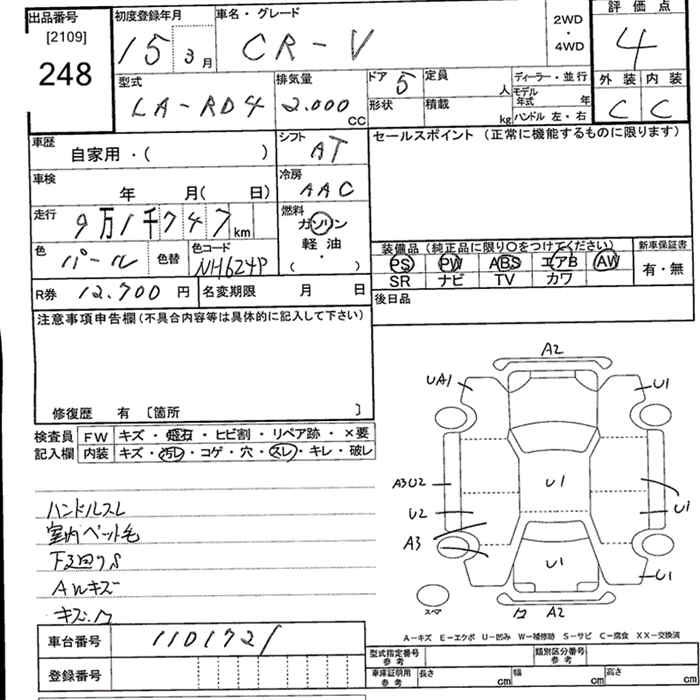 出品番号
[2109]
248
初度登録年月
15 3月
車名・グレード
CR-V
2WD
・
4WD
評価点
4
外装 内装
C C
型式
LA-RD4
排気量
2.000
cc
ドア 5
形状
定員
人
積載
kg
ディーラー・並行
モデル年式 年
ハンドル 左・右
車歴
自家用・( )
シフト
AT
セールスポイント (正常に機能するものに限ります)
車検
年 月( 日)
冷房
AAC
走行
9万1千747km
燃料
ガソリン
軽油
・
( )
色
パール
色替
色コード
NH624P
装備品 (純正品に限り○をつけてください)
PS PW ABS エアB AW
SR ナビ TV カワ
新車保証書
有・無
R券 12.700 円
名変期限 月 日
後日品
注意事項申告欄 (不具合内容等は具体的に記入して下さい)
修復歴 有 〔箇所 〕
検査員
記入欄
FW キズ・飛石・ヒビ割・リペア跡・×要
内装 キズ・汚レ・コゲ・穴・スレ・キレ・破レ
ハンドルスレ
室内ペット毛
下回りS
AWキズ
A2
UA1
U1
A3U2
U1
U2
U1
A3
U1
U1
スペア
A2
A-キズ E-エクボ U-凹み W-補修跡 S-サビ C-腐食 XX-交換済
車台番号
1101721
登録番号
型式指定番号
参考
類別区分番号
参考
車庫証明用
参考
長さ
cm
幅
cm
高さ
cm